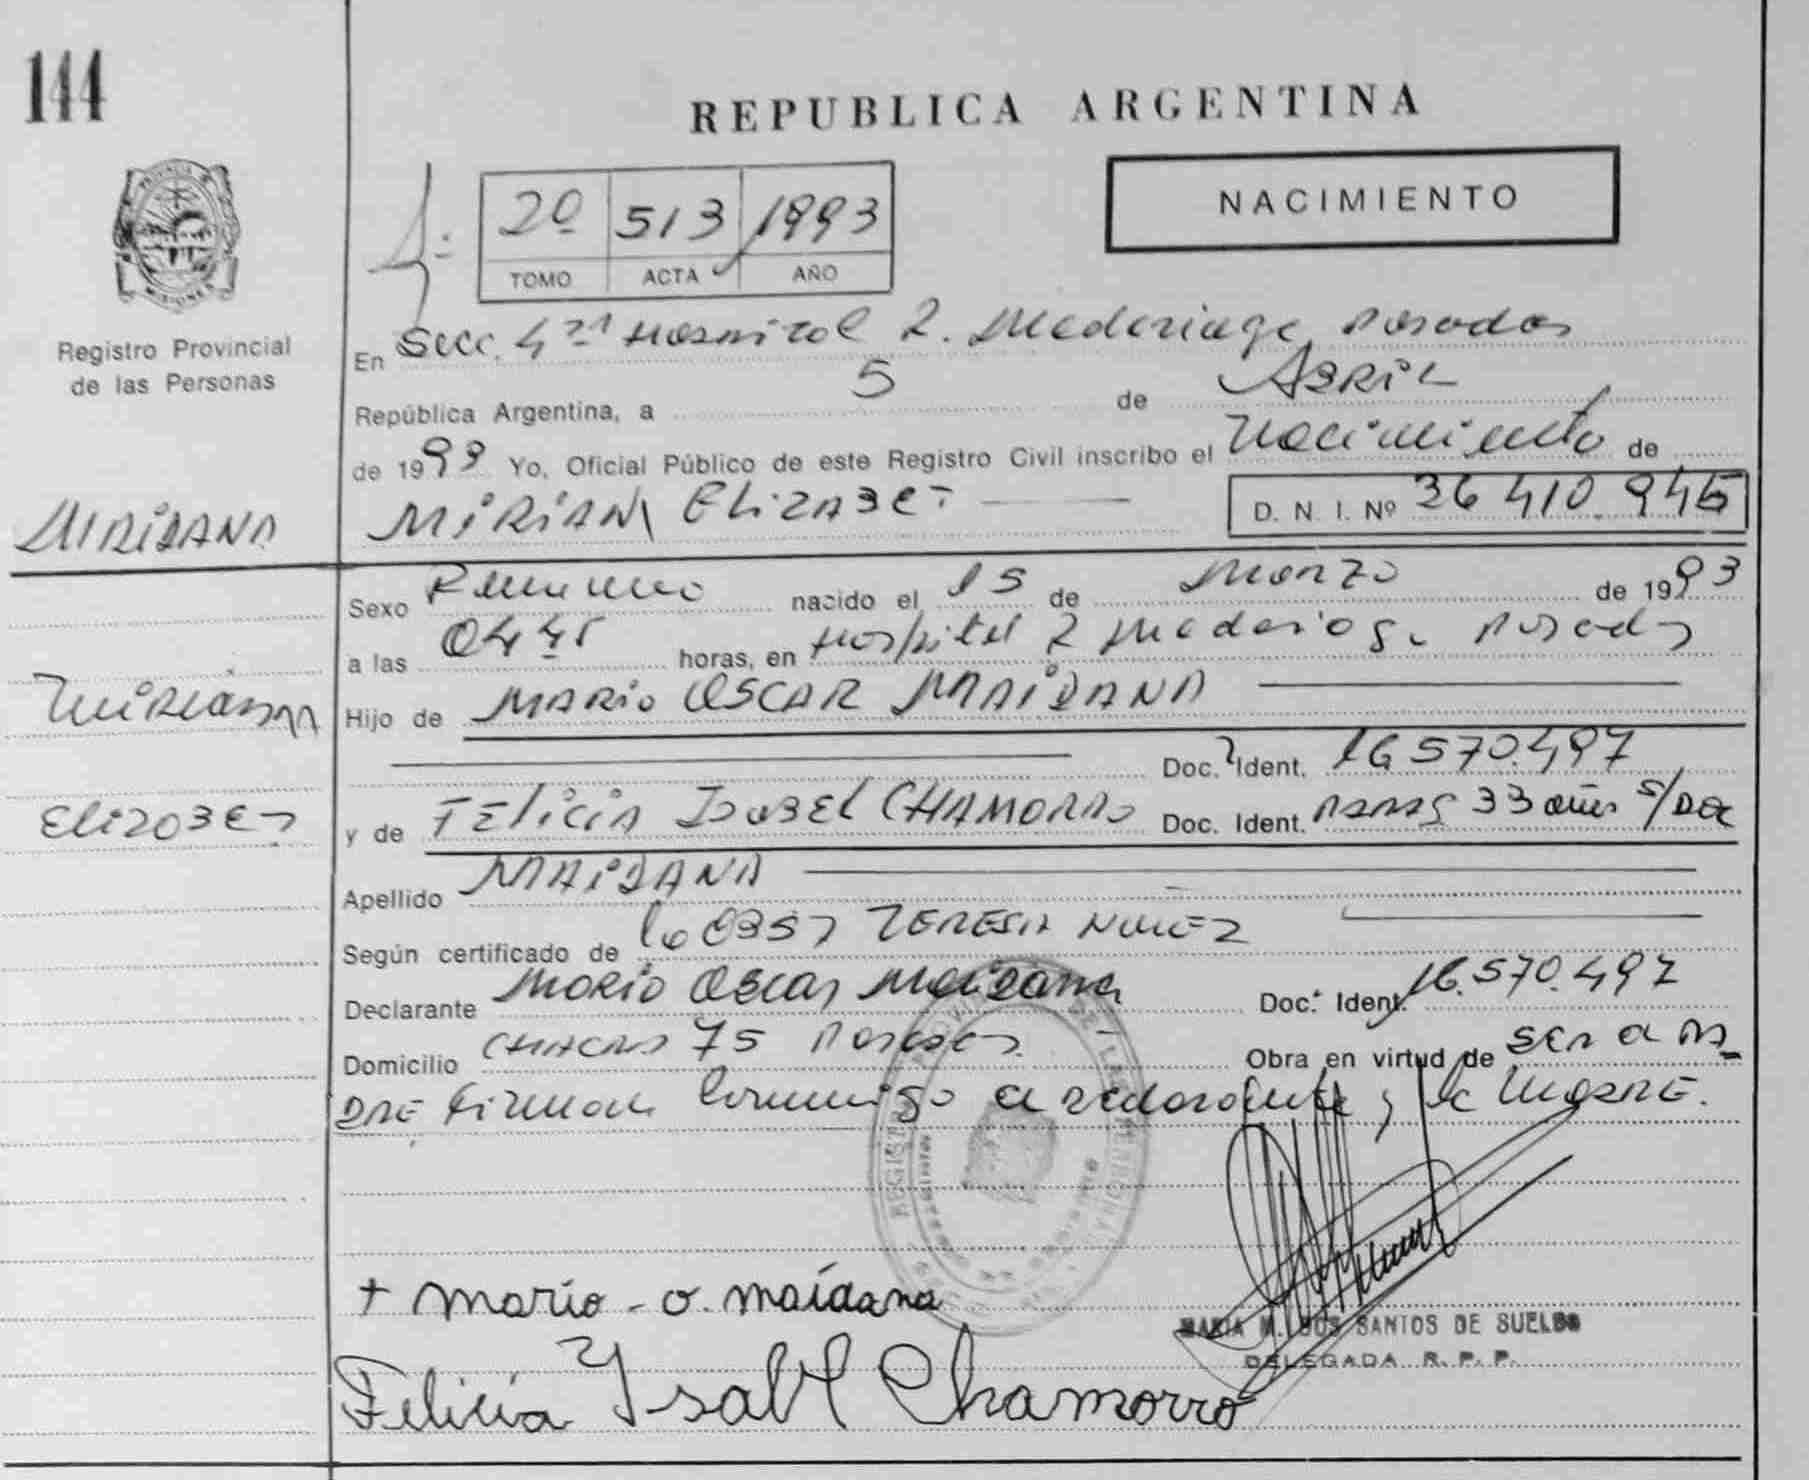 144
REPUBLICA ARGENTINA
NACIMIENTO
2º 513 1993
TOMO ACTA AÑO
Registro Provincial
de las Personas
En Secc. 4ta Hospital R. Madariaga Posadas
República Argentina, a 5 de ABRIL
de 1993 Yo, Oficial Público de este Registro Civil inscribo el Nacimiento de
MIRIAN ELIZABET D. N. I. Nº 36 410.945
MAIDANA
Sexo Femenino nacido el 15 de Marzo de 1993
a las 04 45 horas, en Hospital R Madariaga Posadas
Mirian
Hijo de MARIO OSCAR MAIDANA
Doc. Ident. 16 570.497
Elizabet
y de FELICIA ISABEL CHAMORRO Doc. Ident. 33 años S/DOC
Apellido MAIDANA
Según certificado de la OBST TERESA NUÑEZ
Declarante MARIO OSCAR MAIDANA Doc. Ident. 16.570.497
Domicilio CHACRA 75 Posadas Obra en virtud de SER el PA
DRE Firman Conmigo el declarante y la MADRE.
+ mario - o. maidana
MARIA M. DOS SANTOS DE SUELDO
DELEGADA R. P. P.
Felicia Ysabel Chamorro